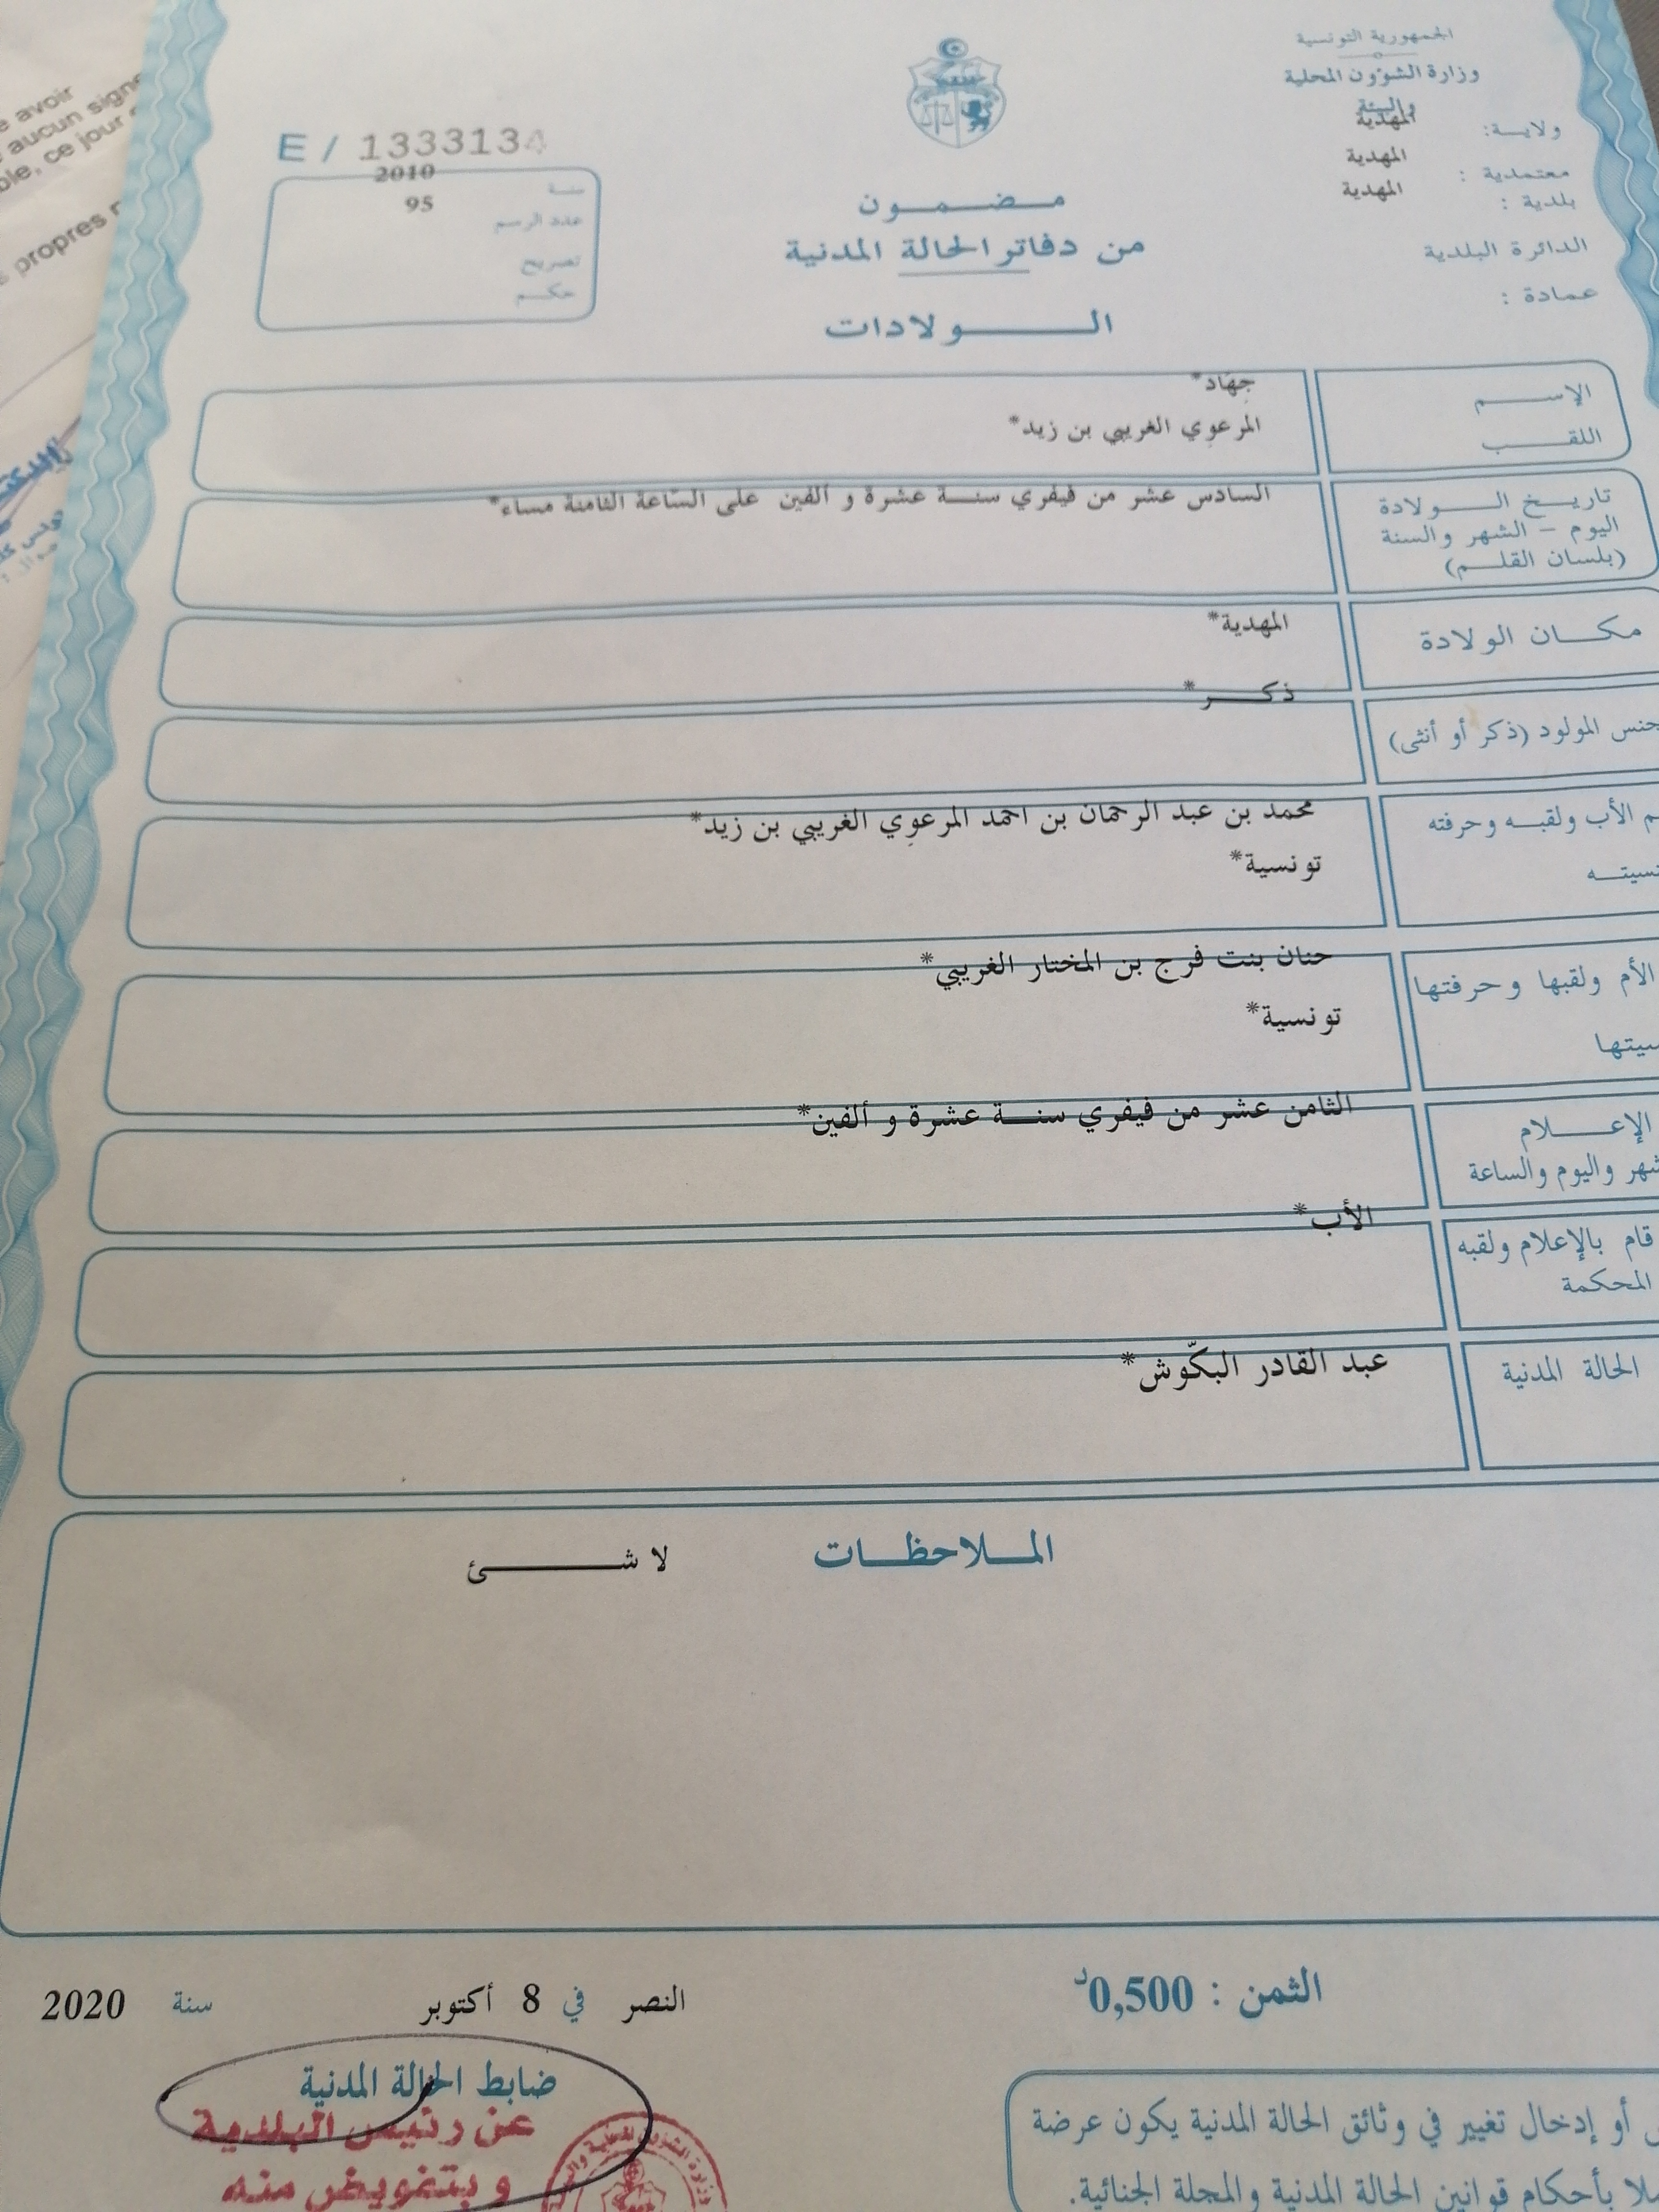 الجمهورية التونسية
وزارة الشؤون المحلية
والبيئة
ولاية: المهدية
معتمدية : المهدية
بلدية : المهدية
الدائرة البلدية
عمادة :
مضمون
من دفاتر الحالة المدنية
الولادات
E / 1333134
سنة 2010
عدد الرسم 95
تصريح
حكم
الإسم جِهَاد*
اللقب المرعوِي الغريبي بن زيد*
تاريخ الولادة السادس عشر من فيفري سنة عشرة و ألفين على السّاعة الثامنة مساء*
اليوم – الشهر والسنة
(بلسان القلم)
مكان الولادة المهدية*
ذكر*
جنس المولود (ذكر أو أنثى)
الأب ولقبه وحرفته محمد بن عبد الرحمان بن احمد المرعوِي الغريبي بن زيد*
تونسية*
الأم ولقبها وحرفتها حنان بنت فرج بن المختار الغريبي*
تونسية*
الإعلام الثامن عشر من فيفري سنة عشرة و ألفين*
واليوم والساعة
الأب*
قام بالإعلام ولقبه
المحكمة
الحالة المدنية عبد القادر البكّوش*
الملاحظات لا شئ
الثمن : 0,500د
النصر في 8 أكتوبر سنة 2020
ضابط الحالة المدنية
عن رئيس البلدية
و بتفويض منه
أو إدخال تغيير في وثائق الحالة المدنية يكون عرضة
بأحكام قوانين الحالة المدنية والمجلة الجنائية.
avoir
aucun signe
ce jour
propres